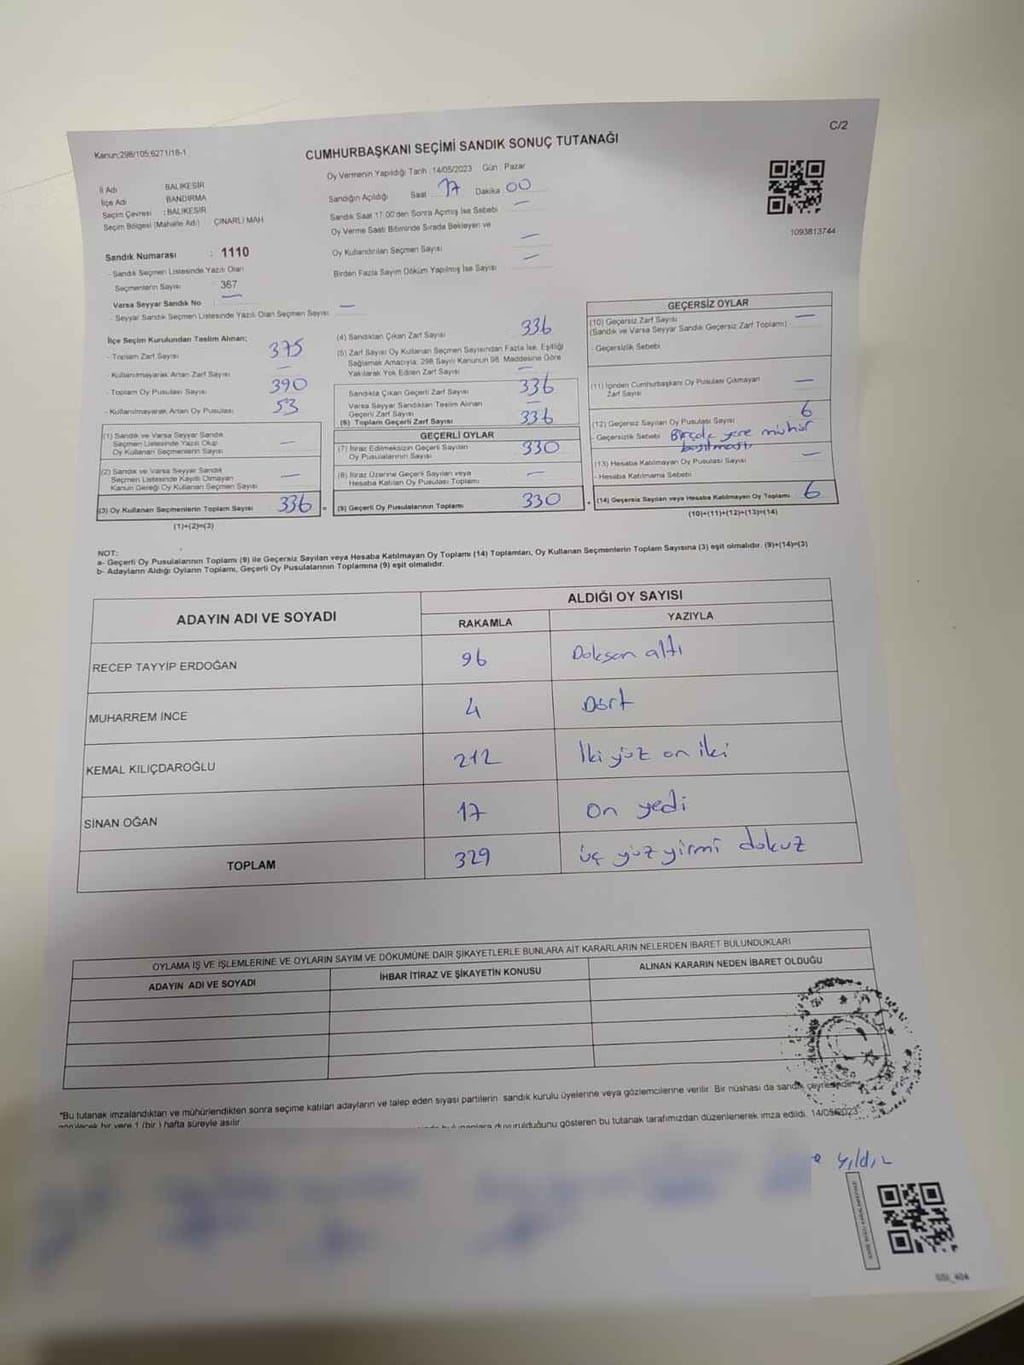 C/2
Kanun:298/105;6271/18-1
CUMHURBAŞKANI SEÇİMİ SANDIK SONUÇ TUTANAĞI
Oy Vermenin Yapıldığı Tarih :14/05/2023 Gün : Pazar
İl Adı BALIKESİR
İlçe Adı BANDIRMA
Seçim Çevresi : BALIKESİR
Seçim Bölgesi (Mahalle Adı) ÇINARLI MAH
Sandığın Açıldığı Saat 17 Dakika 00
Sandık Saat 17.00'den Sonra Açılmış İse Sebebi —
Oy Verme Saati Bitiminde Sırada Bekleyen ve
Oy Kullandırılan Seçmen Sayısı —
Birden Fazla Sayım Döküm Yapılmış İse Sayısı —
1093813744
Sandık Numarası : 1110
- Sandık Seçmen Listesinde Yazılı Olan
Seçmenlerin Sayısı : 367
Varsa Seyyar Sandık No —
- Seyyar Sandık Seçmen Listesinde Yazılı Olan Seçmen Sayısı —
İlçe Seçim Kurulundan Teslim Alınan;
- Toplam Zarf Sayısı 375
- Kullanılmayarak Artan Zarf Sayısı —
- Toplam Oy Pusulası Sayısı 390
- Kullanılmayarak Artan Oy Pusulası 53
(1) Sandık ve Varsa Seyyar Sandık
Seçmen Listesinde Yazılı Olup
Oy Kullanan Seçmenlerin Sayısı —
(2) Sandık ve Varsa Seyyar Sandık
Seçmen Listesinde Kayıtlı Olmayan
Kanun Gereği Oy Kullanan Seçmen Sayısı —
(3) Oy Kullanan Seçmenlerin Toplam Sayısı 336
(1)+(2)=(3)
(4) Sandıktan Çıkan Zarf Sayısı 336
(5) Zarf Sayısı Oy Kullanan Seçmen Sayısından Fazla İse, Eşitliği
Sağlamak Amacıyla; 298 Sayılı Kanunun 98. Maddesine Göre
Yakılarak Yok Edilen Zarf Sayısı —
Sandıkta Çıkan Geçerli Zarf Sayısı 336
Varsa Seyyar Sandıktan Teslim Alınan
Geçerli Zarf Sayısı —
(6) Toplam Geçerli Zarf Sayısı 336
GEÇERLİ OYLAR
(7) İtiraz Edilmeksizin Geçerli Sayılan
Oy Pusulasının Sayısı 330
(8) İtiraz Üzerine Geçerli Sayılan veya
Hesaba Katılan Oy Pusulası Toplamı —
(9) Geçerli Oy Pusulalarının Toplamı 330
GEÇERSİZ OYLAR
(10) Geçersiz Zarf Sayısı —
(Sandık ve Varsa Seyyar Sandık Geçersiz Zarf Toplamı)
- Geçersizlik Sebebi
(11) İçinden Cumhurbaşkanı Oy Pusulası Çıkmayan
Zarf Sayısı —
(12) Geçersiz Sayılan Oy Pusulası Sayısı 6
- Geçersizlik Sebebi Birçok yere mühür
basılması
(13) Hesaba Katılmayan Oy Pusulası Sayısı —
- Hesaba Katılmama Sebebi
(14) Geçersiz Sayılan veya Hesaba Katılmayan Oy Toplamı 6
(10)+(11)+(12)+(13)=(14)
NOT:
a- Geçerli Oy Pusulalarının Toplamı (9) ile Geçersiz Sayılan veya Hesaba Katılmayan Oy Toplamı (14) Toplamları, Oy Kullanan Seçmenlerin Toplam Sayısına (3) eşit olmalıdır. (9)+(14)=(3)
b- Adayların Aldığı Oyların Toplamı, Geçerli Oy Pusulalarının Toplamına (9) eşit olmalıdır.
ADAYIN ADI VE SOYADI ALDIĞI OY SAYISI
RAKAMLA YAZIYLA
RECEP TAYYİP ERDOĞAN 96 Doksan altı
MUHARREM İNCE 4 Dört
KEMAL KILIÇDAROĞLU 212 İki yüz on iki
SİNAN OĞAN 17 On yedi
TOPLAM 329 üç yüz yirmi dokuz
OYLAMA İŞ VE İŞLEMLERİNE VE OYLARIN SAYIM VE DÖKÜMÜNE DAİR ŞİKAYETLERLE BUNLARA AİT KARARLARIN NELERDEN İBARET BULUNDUKLARI
ADAYIN ADI VE SOYADI İHBAR İTİRAZ VE ŞİKAYETİN KONUSU ALINAN KARARIN NEDEN İBARET OLDUĞU
"Bu tutanak imzalandıktan ve mühürlendikten sonra seçime katılan adayların ve talep eden siyasi partilerin sandık kurulu üyelerine veya gözlemcilerine verilir. Bir nüshası da sandık çevresinde
görülecek bir yere 1 (bir) hafta süreyle asılır.
duyurulduğunu gösteren bu tutanak tarafımızdan düzenlenerek imza edildi. 14/05/2023
Yıldız